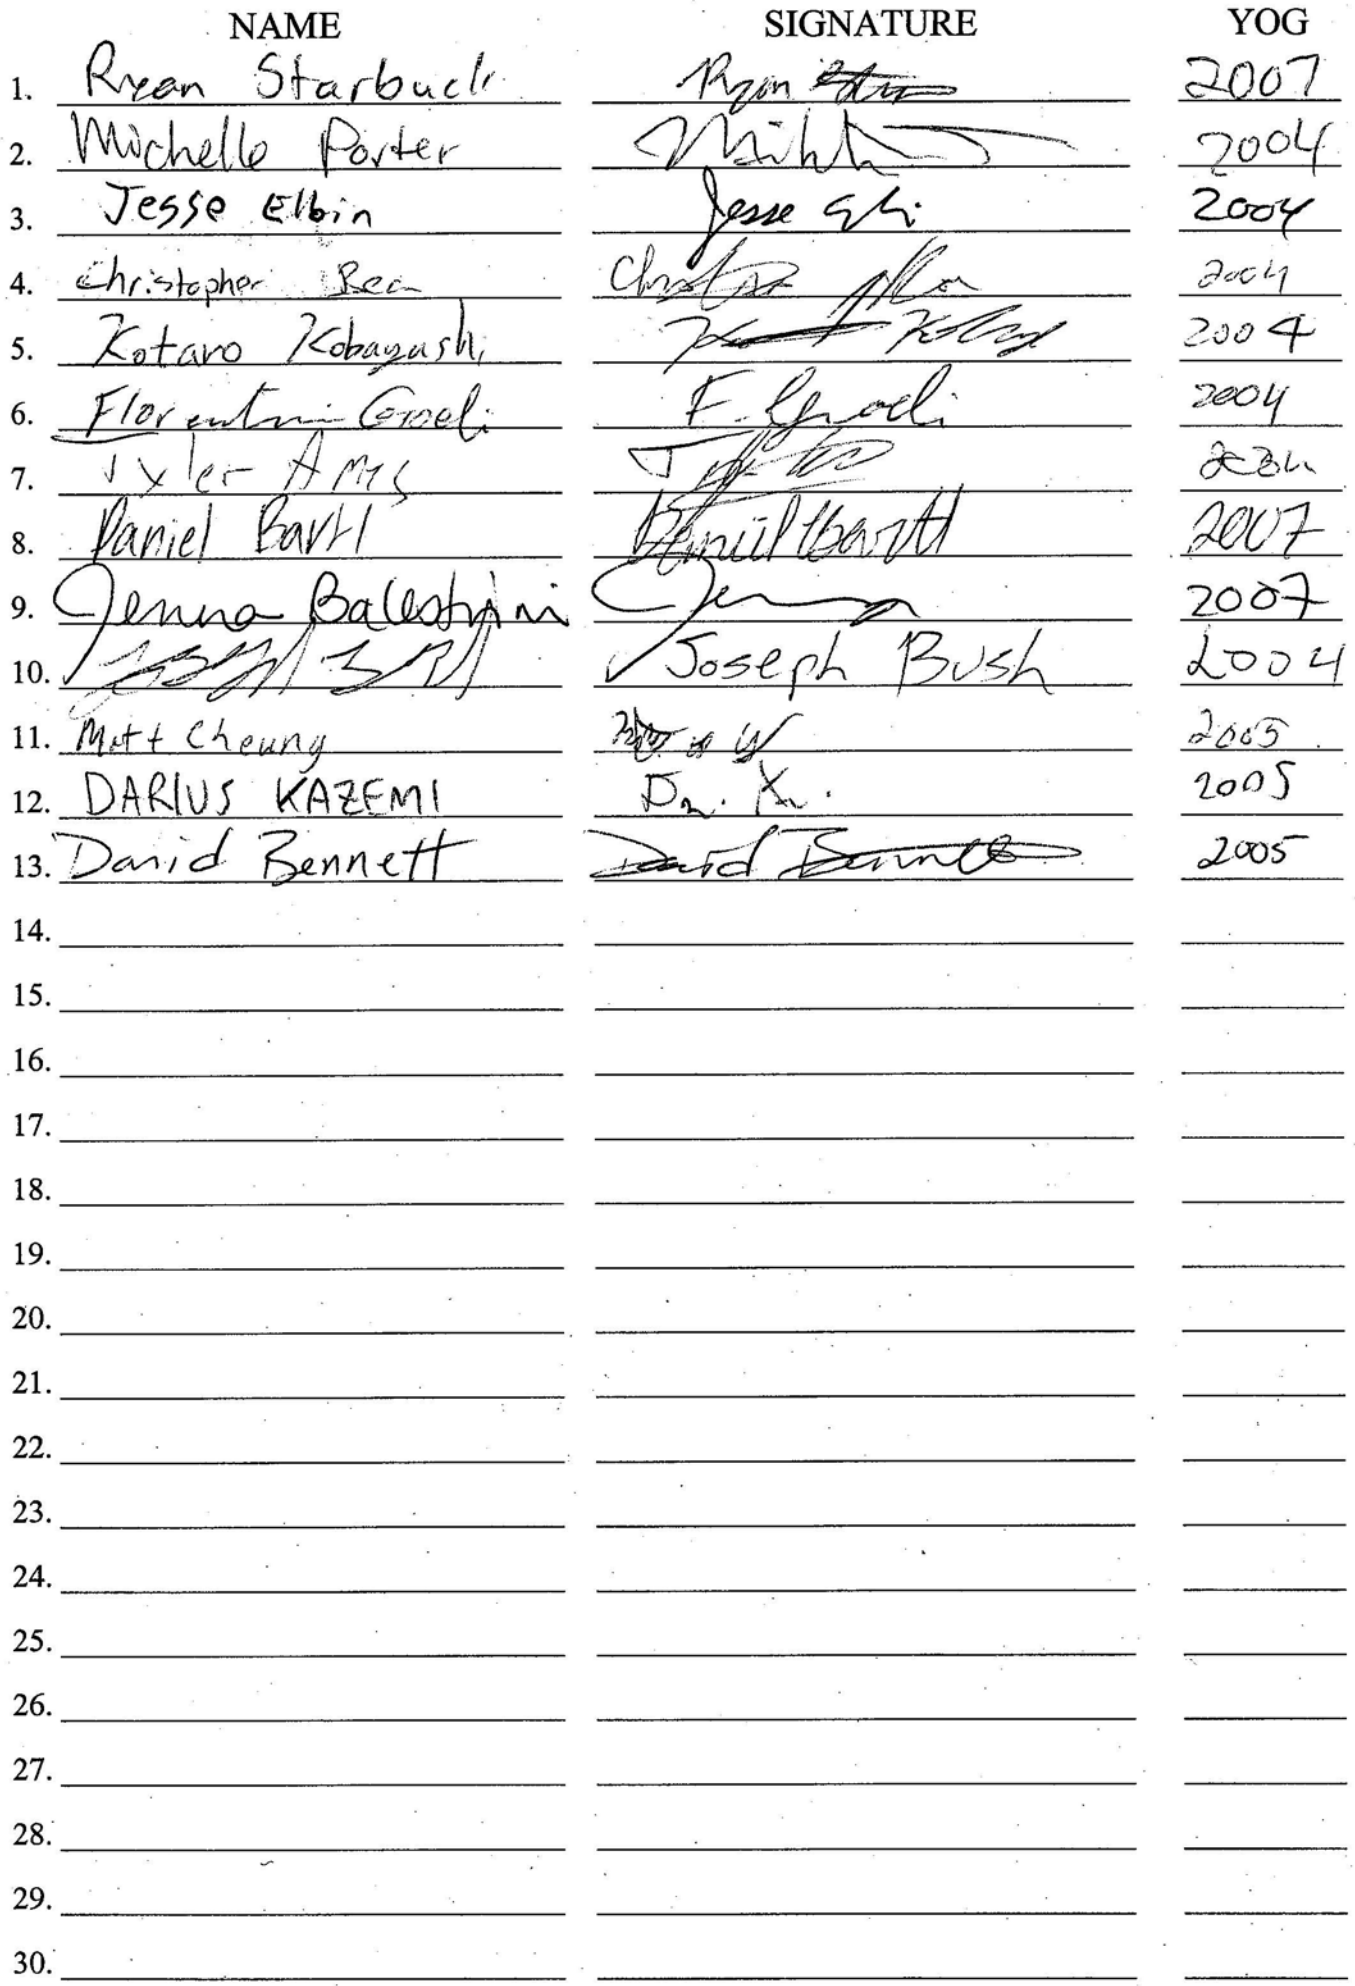 NAME SIGNATURE YOG
1. Ryan Starbuck Ryan 2007
2. Michelle Porter 2004
3. Jesse Elbin Jesse 2004
4. Christopher 2004
5. Kotaro Kobayashi 2004
6. F. 2004
7. Tyler 2004
8. Daniel Bartl Daniel Bartl 2007
9. Jenna Balestrini Jenna 2007
10. Joseph Bush 2004
11. Matt Cheung 2005
12. DARIUS KAZEMI 2005
13. David Bennett David Bennett 2005
14.
15.
16.
17.
18.
19.
20.
21.
22.
23.
24.
25.
26.
27.
28.
29.
30.